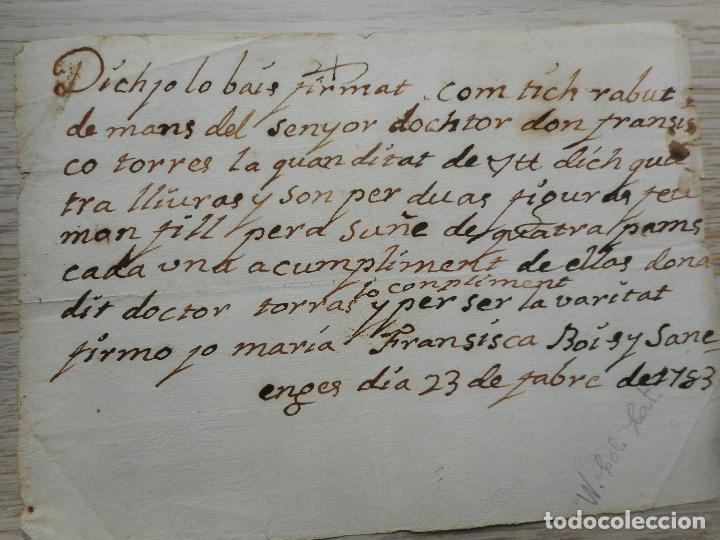 Dich jo lo bais firmat com tich rabut
de mans del senyor dochtor don fransis
co torres la quanditat de 4tt dich qua
tra lliuras y son per duas figuras feu
mon fill pera suñe de quatra pams
cada una a cumpliment de ellas dona
lo conpliment
dit doctor torras y per ser la varitat
firmo jo maria Fransisca Bois y Sane
enges dia 23 de fabre de 1783
W. Col. Cat.
todocoleccion